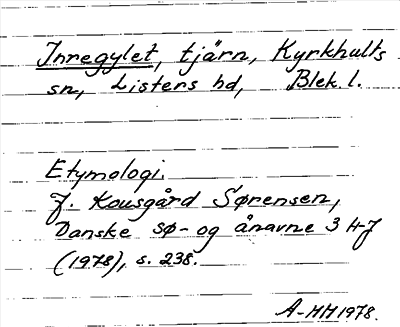 Inregylet, tjärn, Kyrkhults
sn, Listers hd, Blek. l.
Etymologi.
J. Kousgård Sørensen,
Danske sø- og ånavne 3 H-J
(1978), s. 238.
A-HH 1978.